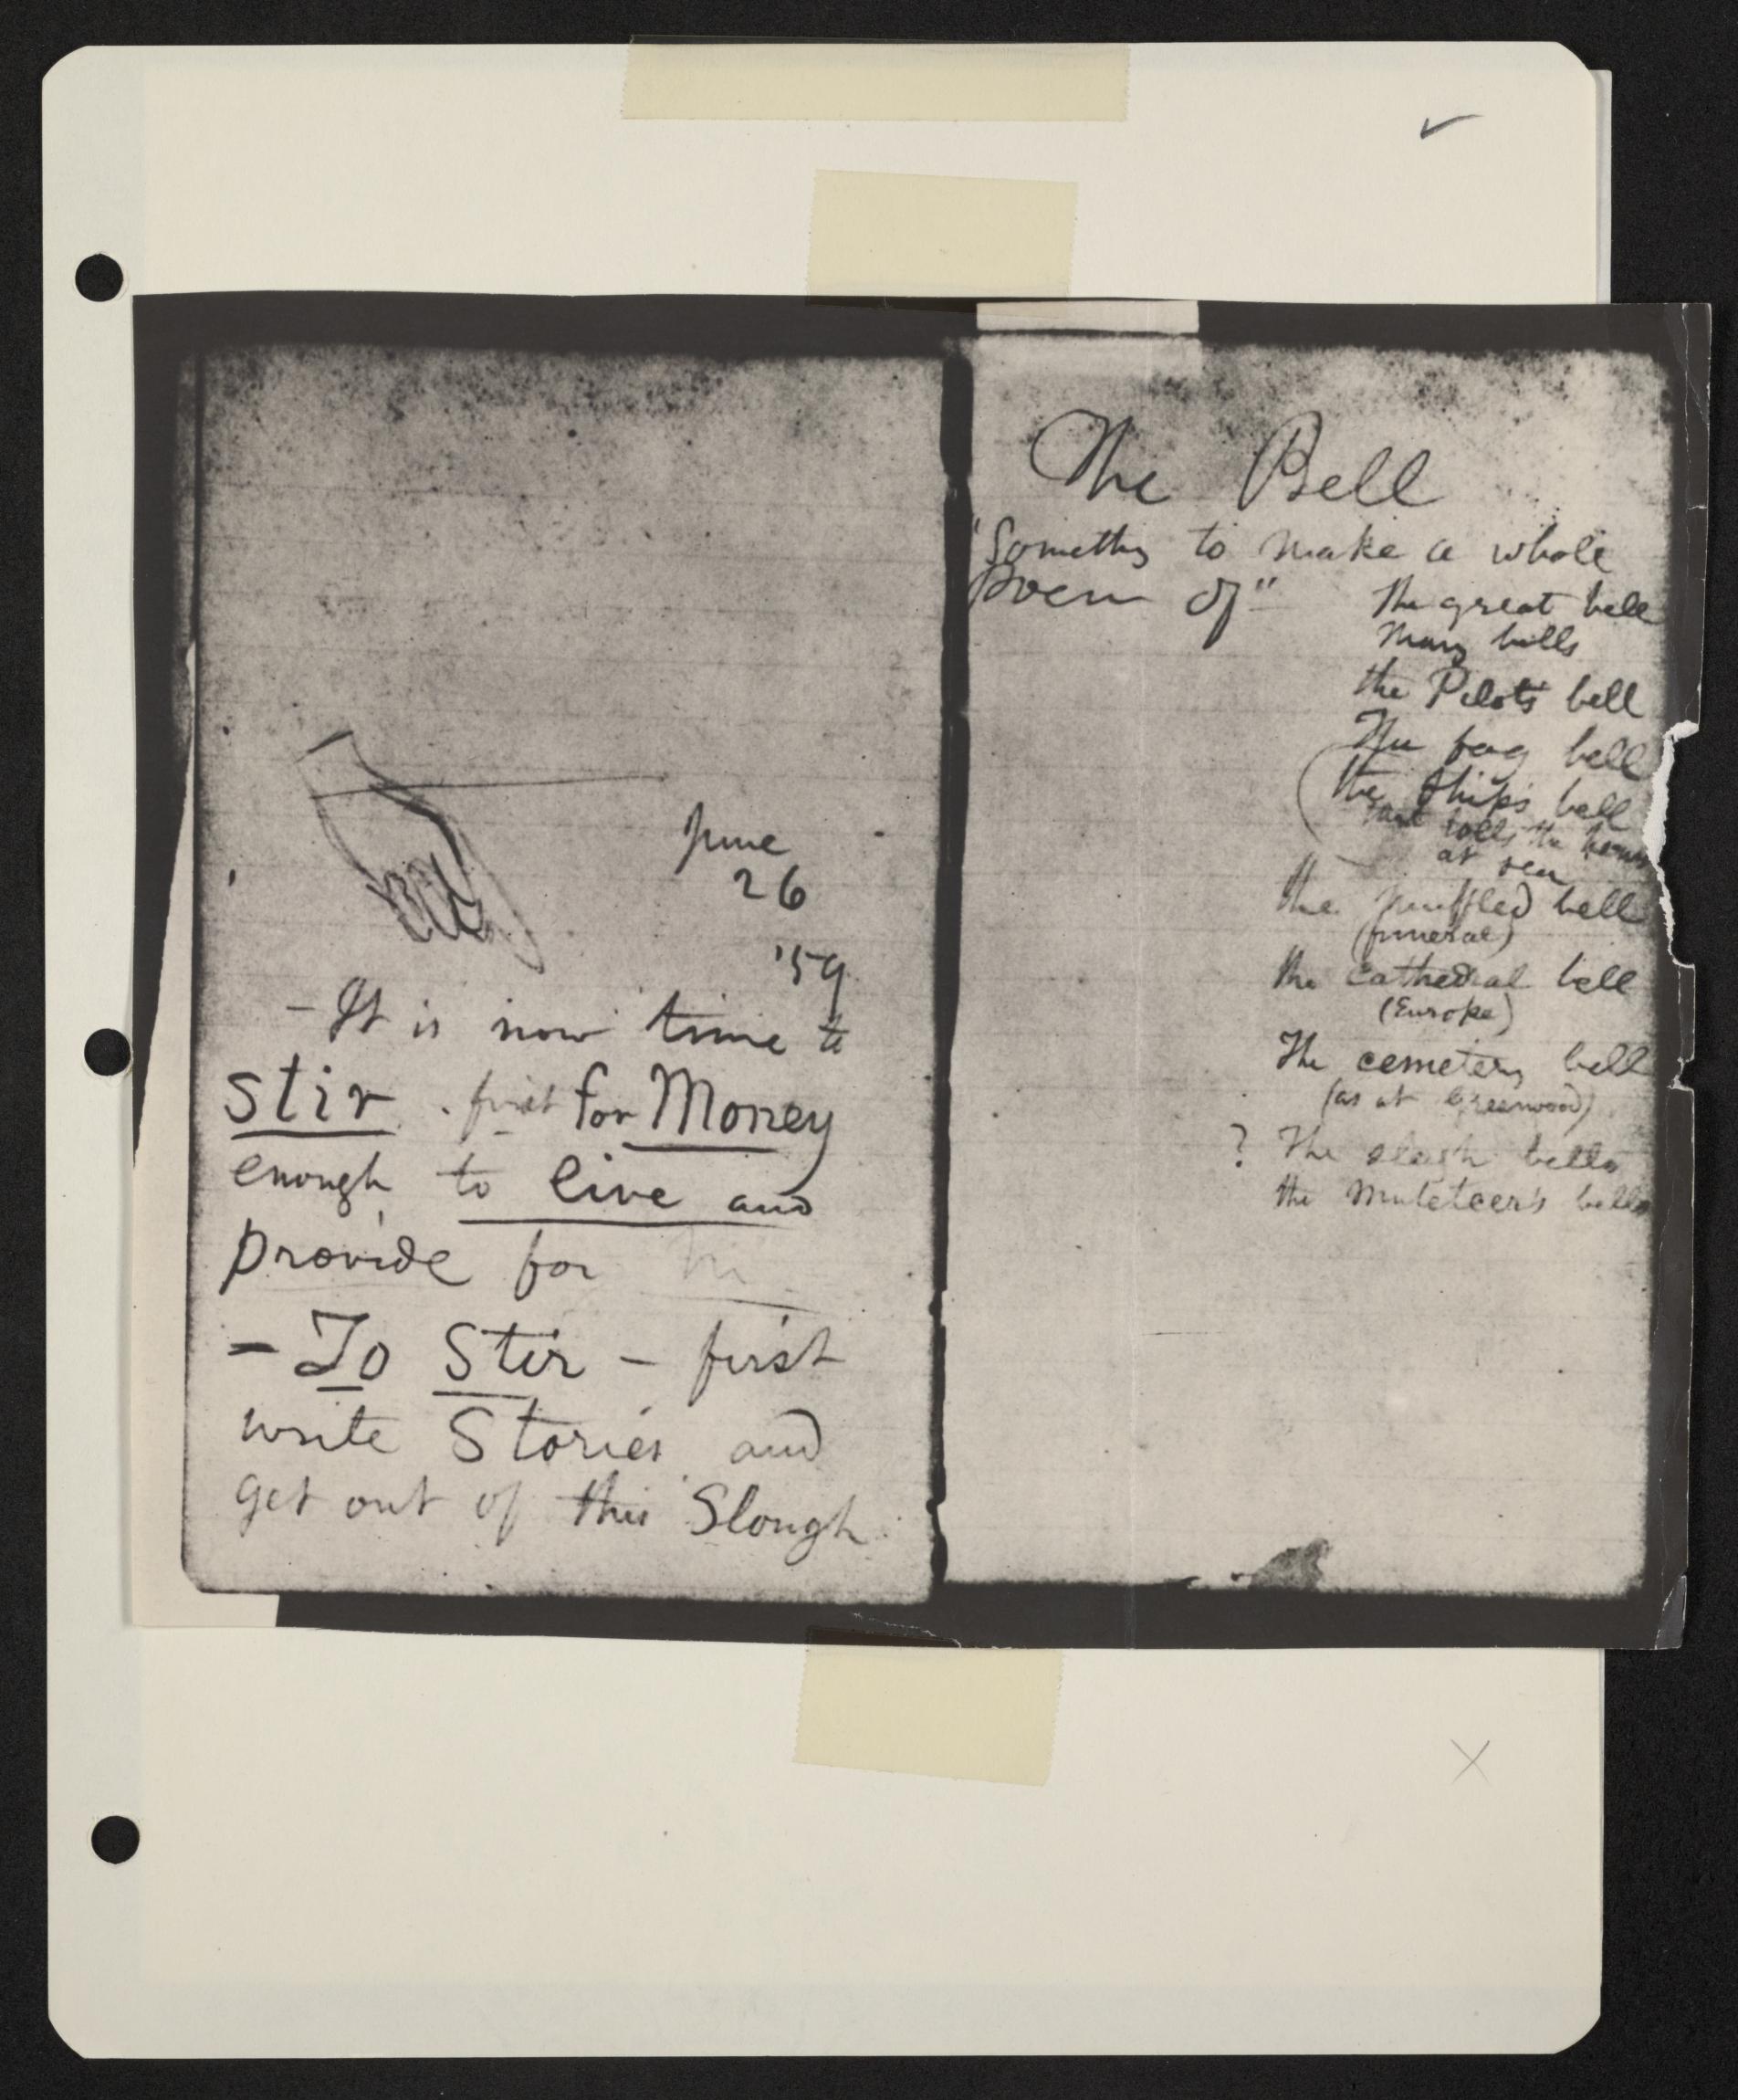 June
26
'59
- It is now time to
Stir. first for Money
enough to live and
provide for M
- To Stir - first
write Stories and
get out of this Slough.
The Bell
"Somethg to make a whole
poem of"
The great bell
Many bells
the Pilot's bell
The fog bell
the Ship's bell
that tolls the hours
at sea
the muffled bell
(funeral)
the Cathedral bell
(Europe)
The cemetery bell
(as at Greenwood)
? The sleigh bells
the Muleteer's bells